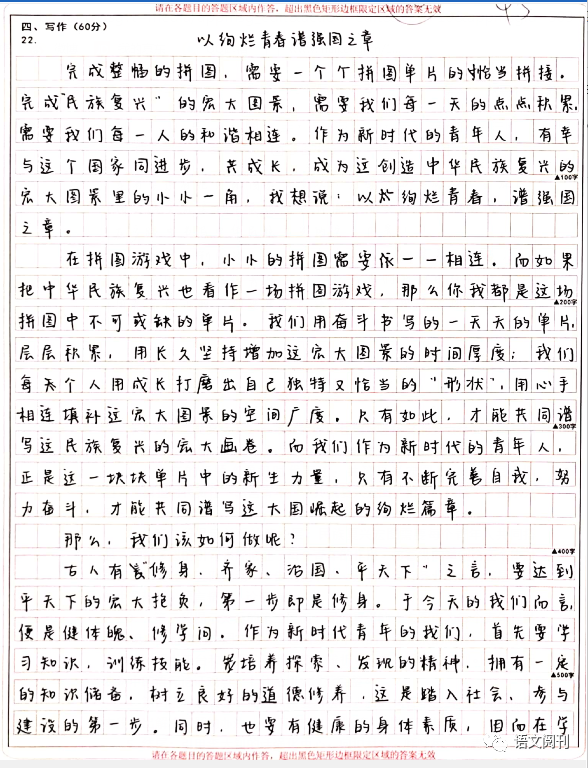 请在各题目的答题区域内作答，超出黑色矩形边框限定区域的答案无效
43
四、写作（60分）
22.
以绚烂青春谱强国之章
完成整幅的拼图，需要一个个拼图单片的恰当拼接。
完成“民族复兴”的宏大图景，需要我们每一天的点点积累，
需要我们每一人的和谐相连。作为新时代的青年人，有幸
与这个国家同进步，共成长，成为这创造中华民族复兴的
▲100字
宏大图景里的小小一角，我想说：以绚烂青春，谱强国
之章。
在拼图游戏中，小小的拼图需要依一一相连。而如果
把中华民族复兴也看作一场拼图游戏，那么你我都是这场
▲200字
拼图中不可或缺的单片。我们用奋斗书写的一天天的单片，
层层积累，用长久坚持增加这宏大图景的时间厚度；我们
每个人用成长打磨出自己独特又恰当的“形状”，用心手
相连填补这宏大图景的空间广度。只有如此，才能共同谱
▲300字
写这民族复兴的宏大画卷。而我们作为新时代的青年人，
正是这一块块单片中的新生力量，只有不断完善自我，努
力奋斗，才能共同谱写这大国崛起的绚烂篇章。
那么，我们该如何做呢？
▲400字
古人有“修身、齐家、治国、平天下”之言，要达到
平天下的宏大抱负，第一步即是修身。于今天的我们而言，
便是健体魄、修学问。作为新时代青年的我们，首先要学
习知识，训练技能。培养探索、发现的精神，拥有一定
▲500字
的知识储备，树立良好的道德修养，这是踏入社会、参与
建设的第一步。同时，也要有健康的身体素质，因而在学
语文阅刊
请在各题目的答题区域内作答，超出黑色矩形边框限定区域的答案无效